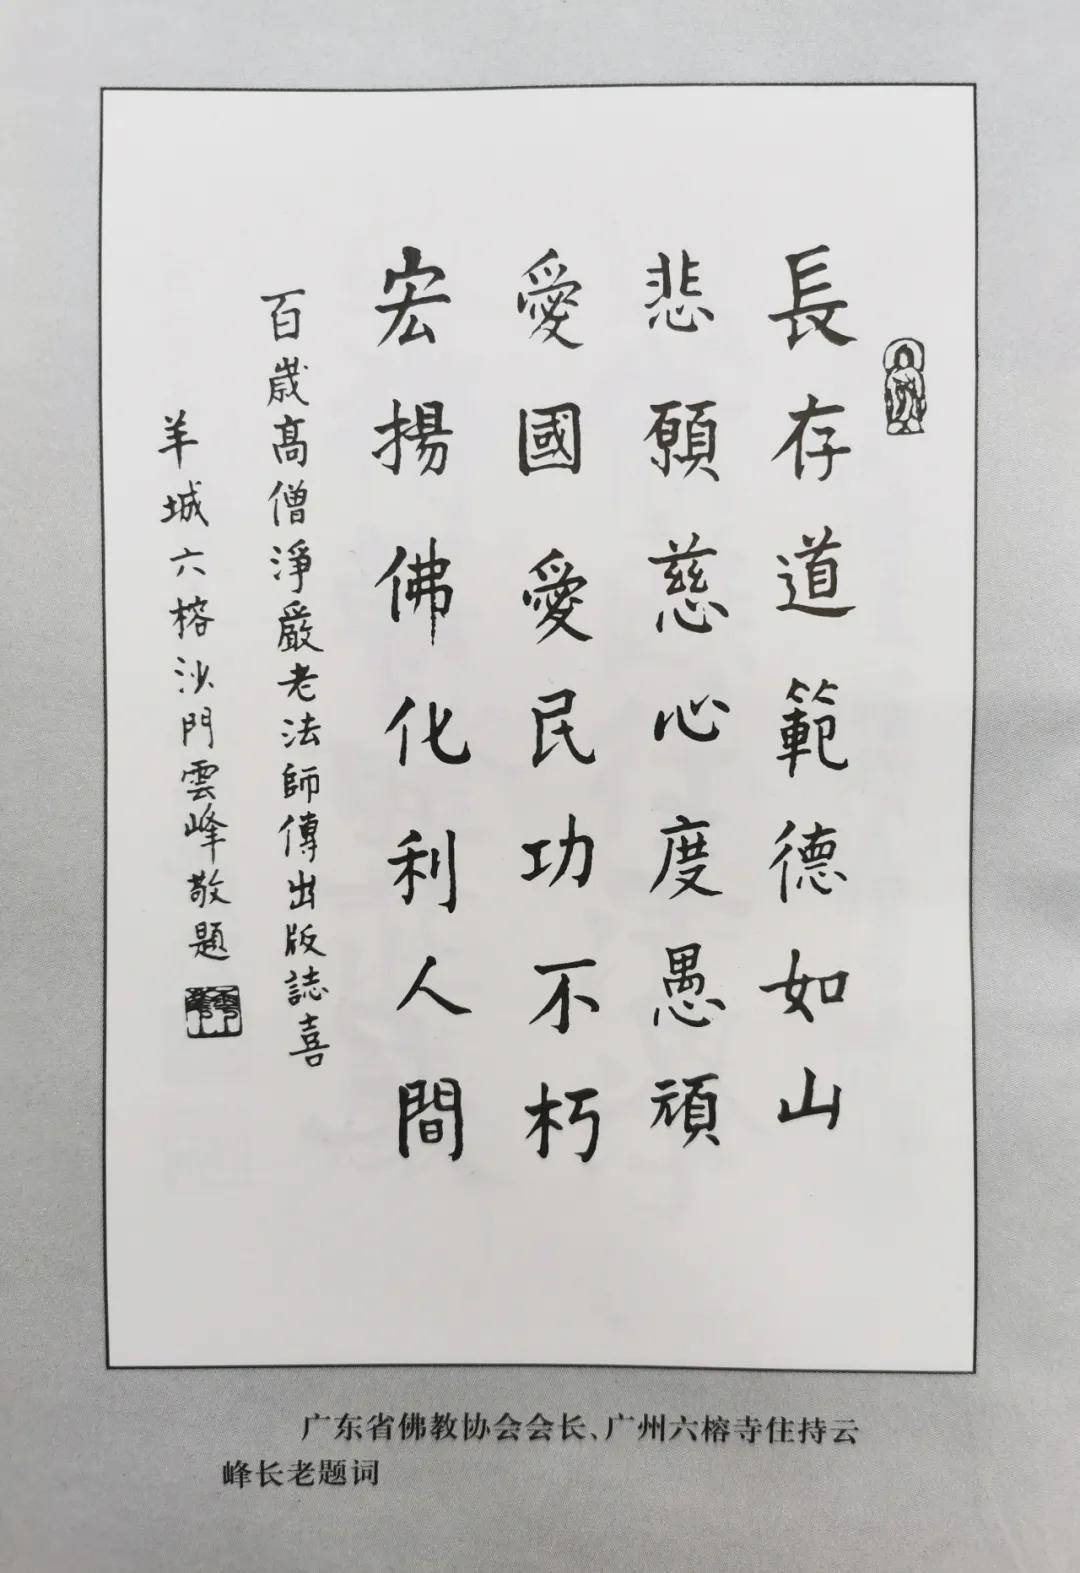 長存道範德如山
悲願慈心度愚頑
愛國愛民功不朽
宏揚佛化利人間
百歲高僧淨嚴老法師傳出版誌喜
羊城六榕沙門雲峰敬題
广东省佛教协会会长、广州六榕寺住持云
峰长老题词